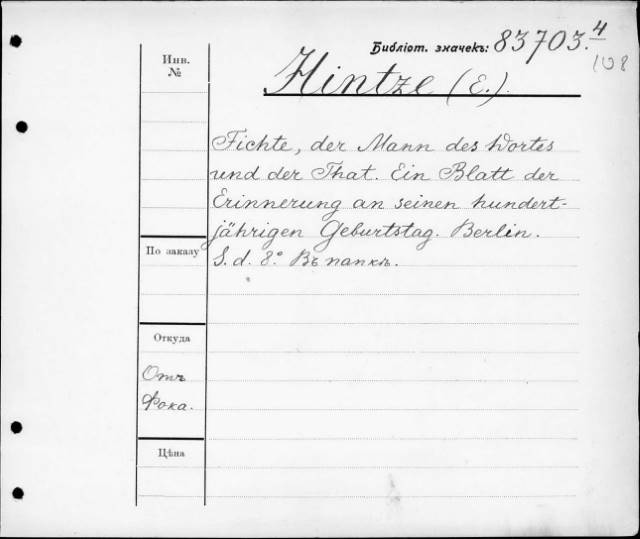 Библіот. значекъ: 83703.4
108
Инв.
№
Hintze (E.).
Fichte, der Mann des Wortes
und der That. Ein Blatt der
Erinnerung an seinen hundert-
jährigen Geburtstag. Berlin.
S. d. 8.° Въ папкѣ.
По заказу
Откуда
Отъ
Фока.
Цѣна